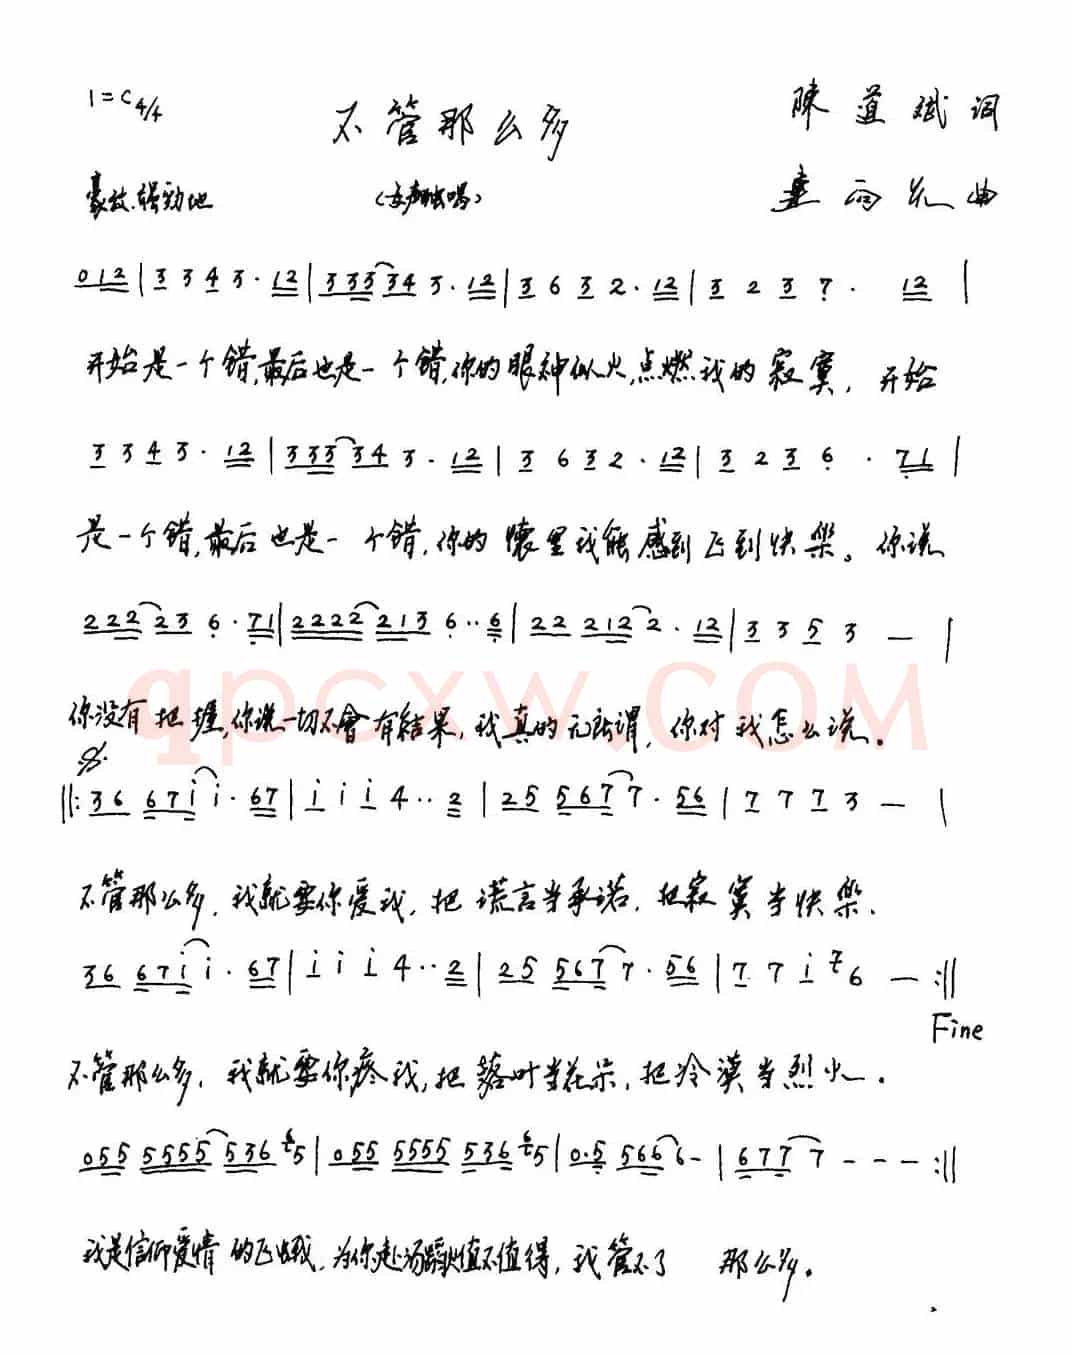 1=C 4/4
不管那么多
陳道斌 词
豪放、强劲地
(女声独唱)
董 曲
0 1 2 | 3 3 4 3 · 1 2 | 3 3 3 3 4 3 · 1 2 | 3 6 3 2 · 1 2 | 3 2 3 7 · 1 2 |
开始是一个错,最后也是一个错,你的眼神似火,点燃我的寂寞,开始
3 3 4 3 · 1 2 | 3 3 3 3 4 3 · 1 2 | 3 6 3 2 · 1 2 | 3 2 3 6 · 7 1 |
是一个错,最后也是一个错,你的怀里我能感到飞到快樂。你说
2 2 2 2 3 6 · 7 1 | 2 2 2 2 2 1 3 6 ·· 6 | 2 2 2 1 2 2 · 1 2 | 3 3 5 3 — |
qpcxw.COM
你没有把握,你说一切不會有结果,我真的无所谓,你对我怎么说.
𝄋
||: 3 6 6 7 i i · 6 7 | i i i 4 ·· 2 | 2 5 5 6 7 7 · 5 6 | 7 7 7 3 — |
不管那么多,我就要你爱我,把谎言当承诺,把寂寞当快樂.
3 6 6 7 i i · 6 7 | i i i 4 ·· 2 | 2 5 5 6 7 7 · 5 6 | 7 7 i 7 6 — :||
Fine
不管那么多,我就要你疼我,把落叶当花朵,把冷漠当烈火.
0 5 5 5 5 5 5 5 3 6 6 5 | 0 5 5 5 5 5 5 5 3 6 6 5 | 0 · 5 5 6 6 6 - | 6 7 7 7 - - - :||
我是信仰爱情的飞蛾,为你赴汤蹈火值不值得,我管不了 那么多.